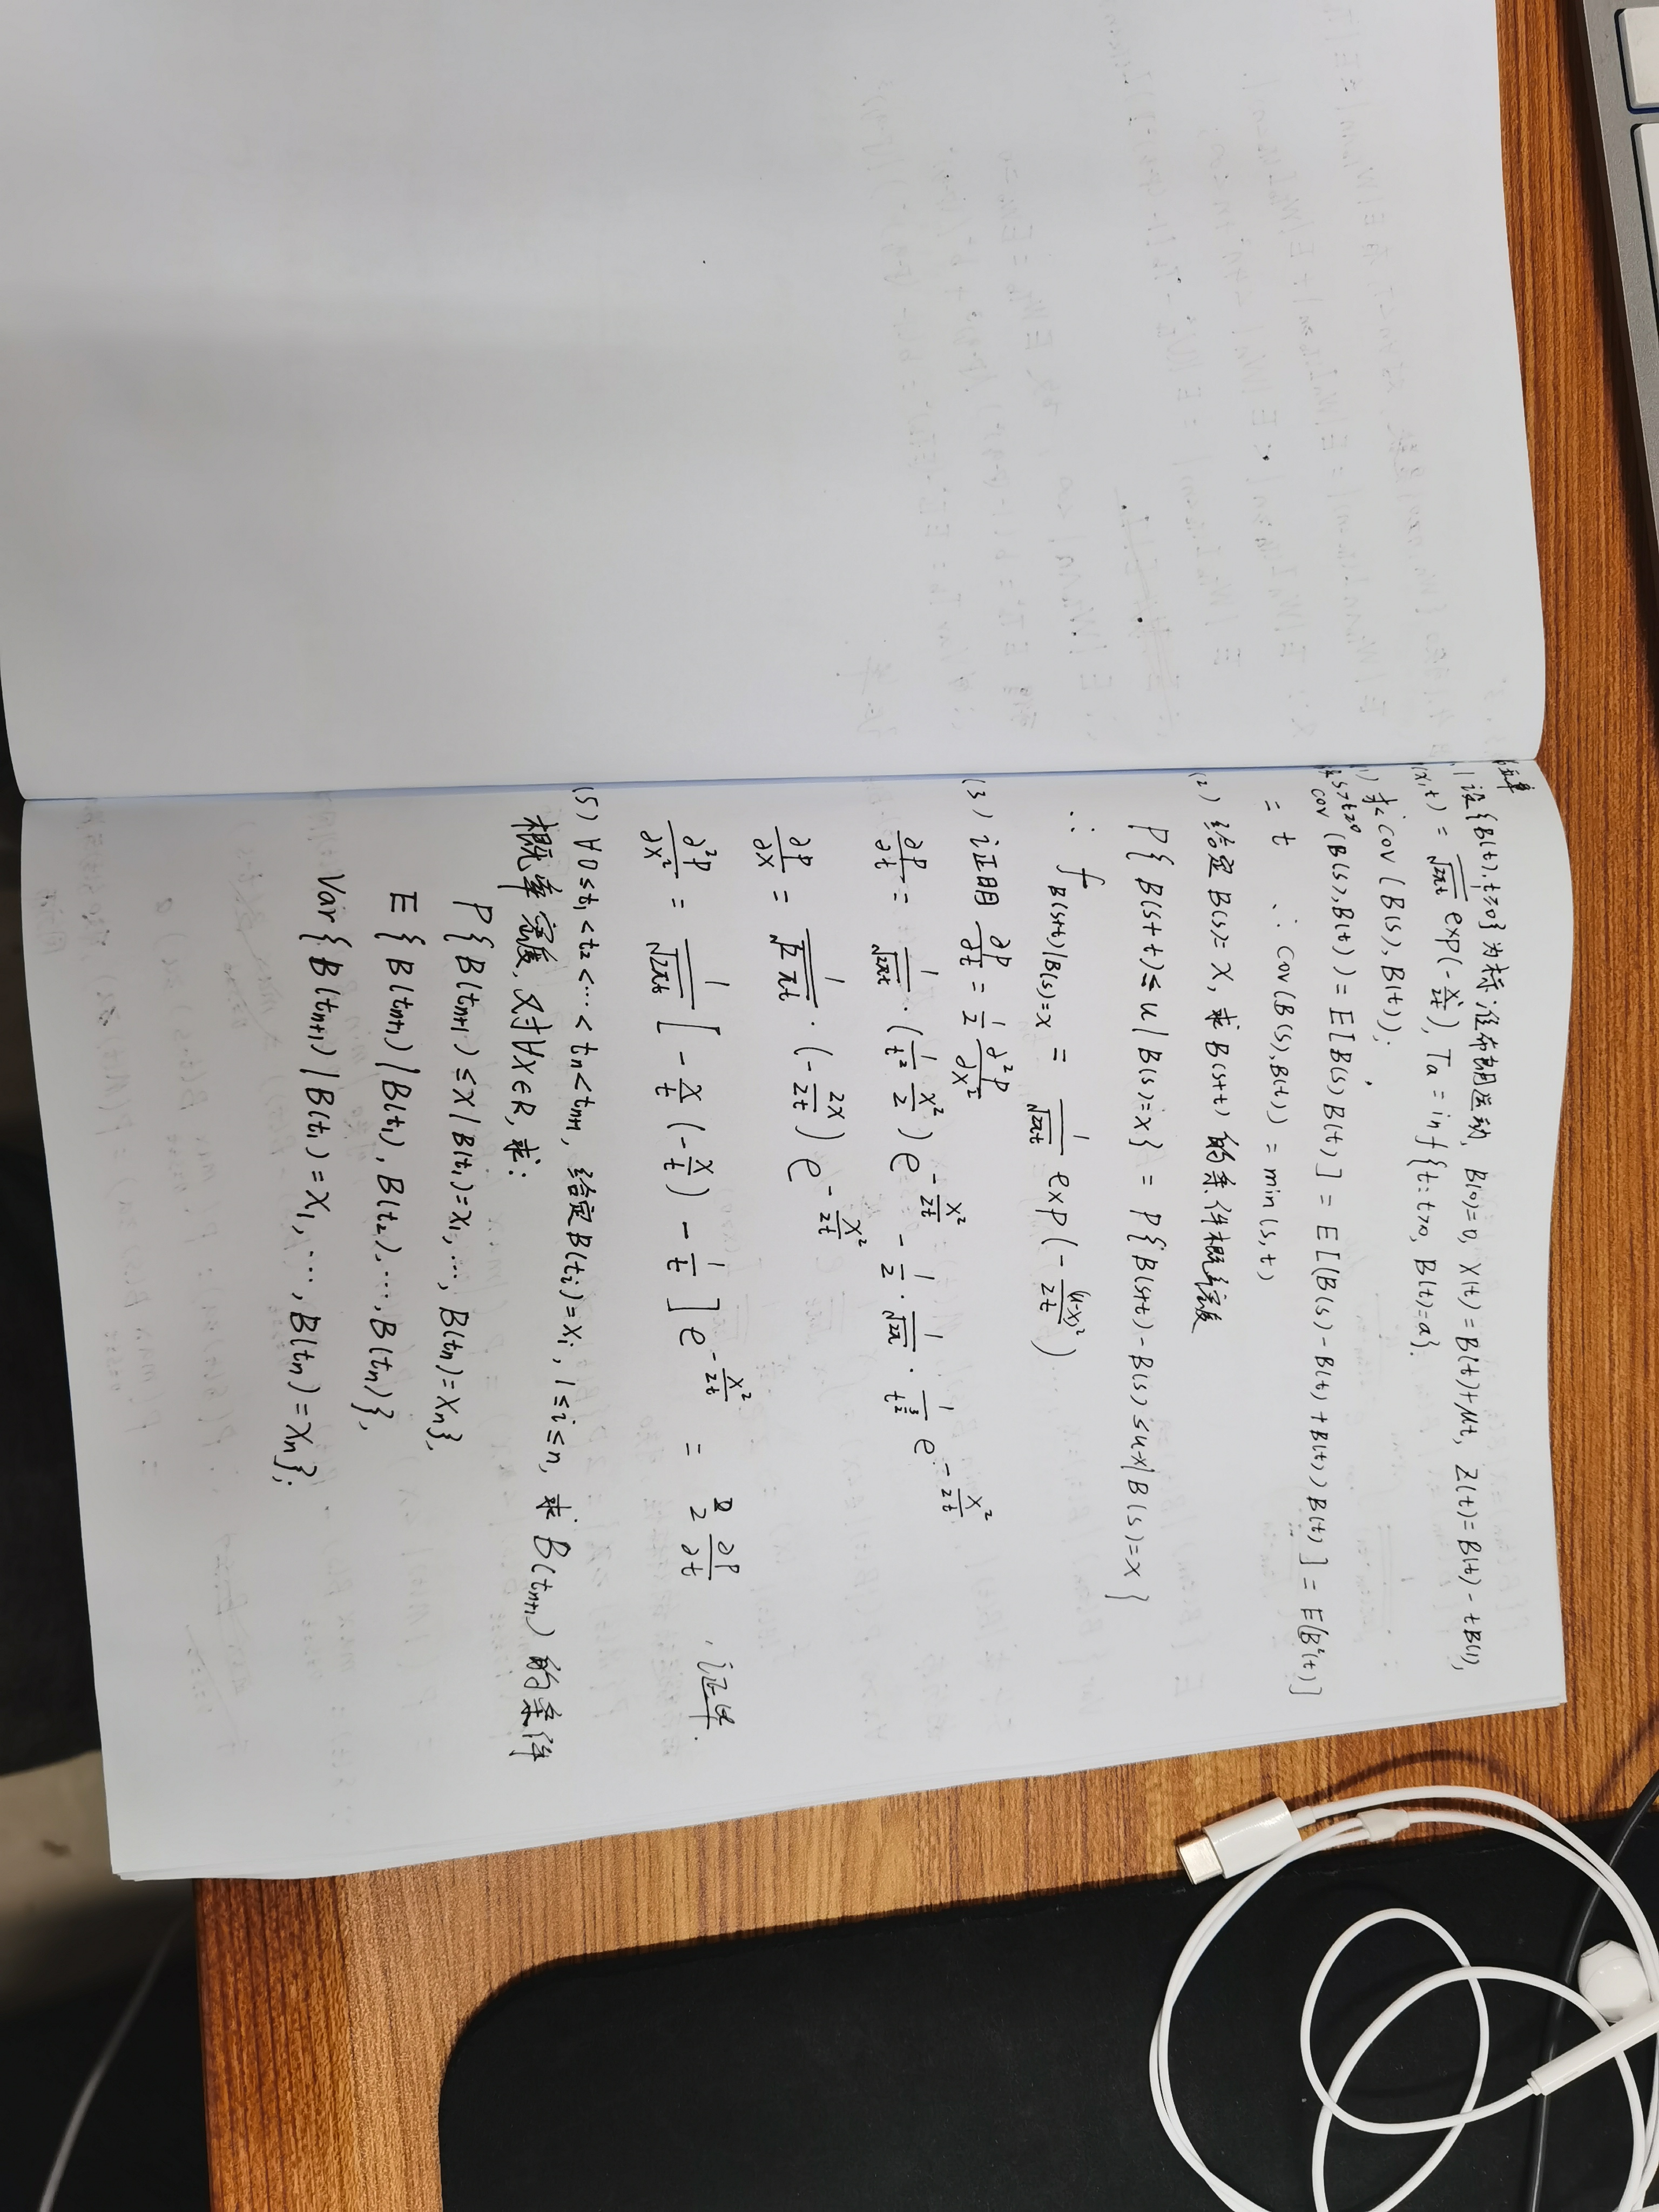 1 设{B(t), t≥0}为标准布朗运动, B(0)=0, X(t)=B(t)+μt, Z(t)=B(t)-tB(1),
(x,t) = 1/√(2πt) exp(-x²/2t), Ta = inf{t: t>0, B(t)=a}.
(1) 求 cov(B(s), B(t));
s>t≥0 cov(B(s), B(t)) = E[B(s)B(t)] = E[(B(s)-B(t)+B(t))B(t)] = E[B²(t)]
= t ∴ cov(B(s),B(t)) = min(s,t)
(2) 给定 B(s)=x, 求 B(s+t) 的条件概率密度
P{B(s+t)≤u|B(s)=x} = P{B(s+t)-B(s)≤u-x|B(s)=x}
∴ f_{B(s+t)|B(s)=x} = 1/√(2πt) exp(-(u-x)²/2t)
(3) 证明 ∂p/∂t = 1/2 ∂²p/∂x²
∂p/∂t = 1/√(2πt) · (1/t² x²/2) e^{-x²/2t} - 1/2 · 1/√(2π) · 1/t^{3/2} e^{-x²/2t}
∂p/∂x = 1/√(2πt) · (-2x/2t) e^{-x²/2t}
∂²p/∂x² = 1/√(2πt) [-x/t (-x/t) - 1/t] e^{-x²/2t} = 2 ∂p/∂t , 证毕.
(5) ∀0≤t₁<t₂<⋯<tₙ<tₙ₊₁, 给定B(tᵢ)=xᵢ, 1≤i≤n, 求 B(tₙ₊₁) 的条件
概率密度, 对∀x∈R, 求:
P{B(tₙ₊₁)≤x|B(t₁)=x₁,⋯,B(tₙ)=xₙ},
E{B(tₙ₊₁)|B(t₁),B(t₂),⋯,B(tₙ)},
Var{B(tₙ₊₁)|B(t₁)=x₁,⋯,B(tₙ)=xₙ};